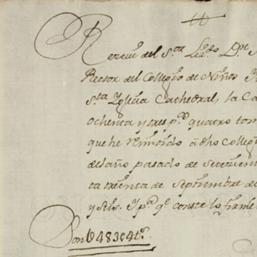 Receui del S.or Lz.do Dn
Rector del Collegio de Niños
S.ta Iglecia Cathedral, la Ca
ochenta y tres p.s quatro tom
que he remitido a dho Collegi
del año pasado de Setecient
ta treinta de Septiembre de
y seis. Y p.a q.e conste lo firme
Son 0483 p.s 4 t.s